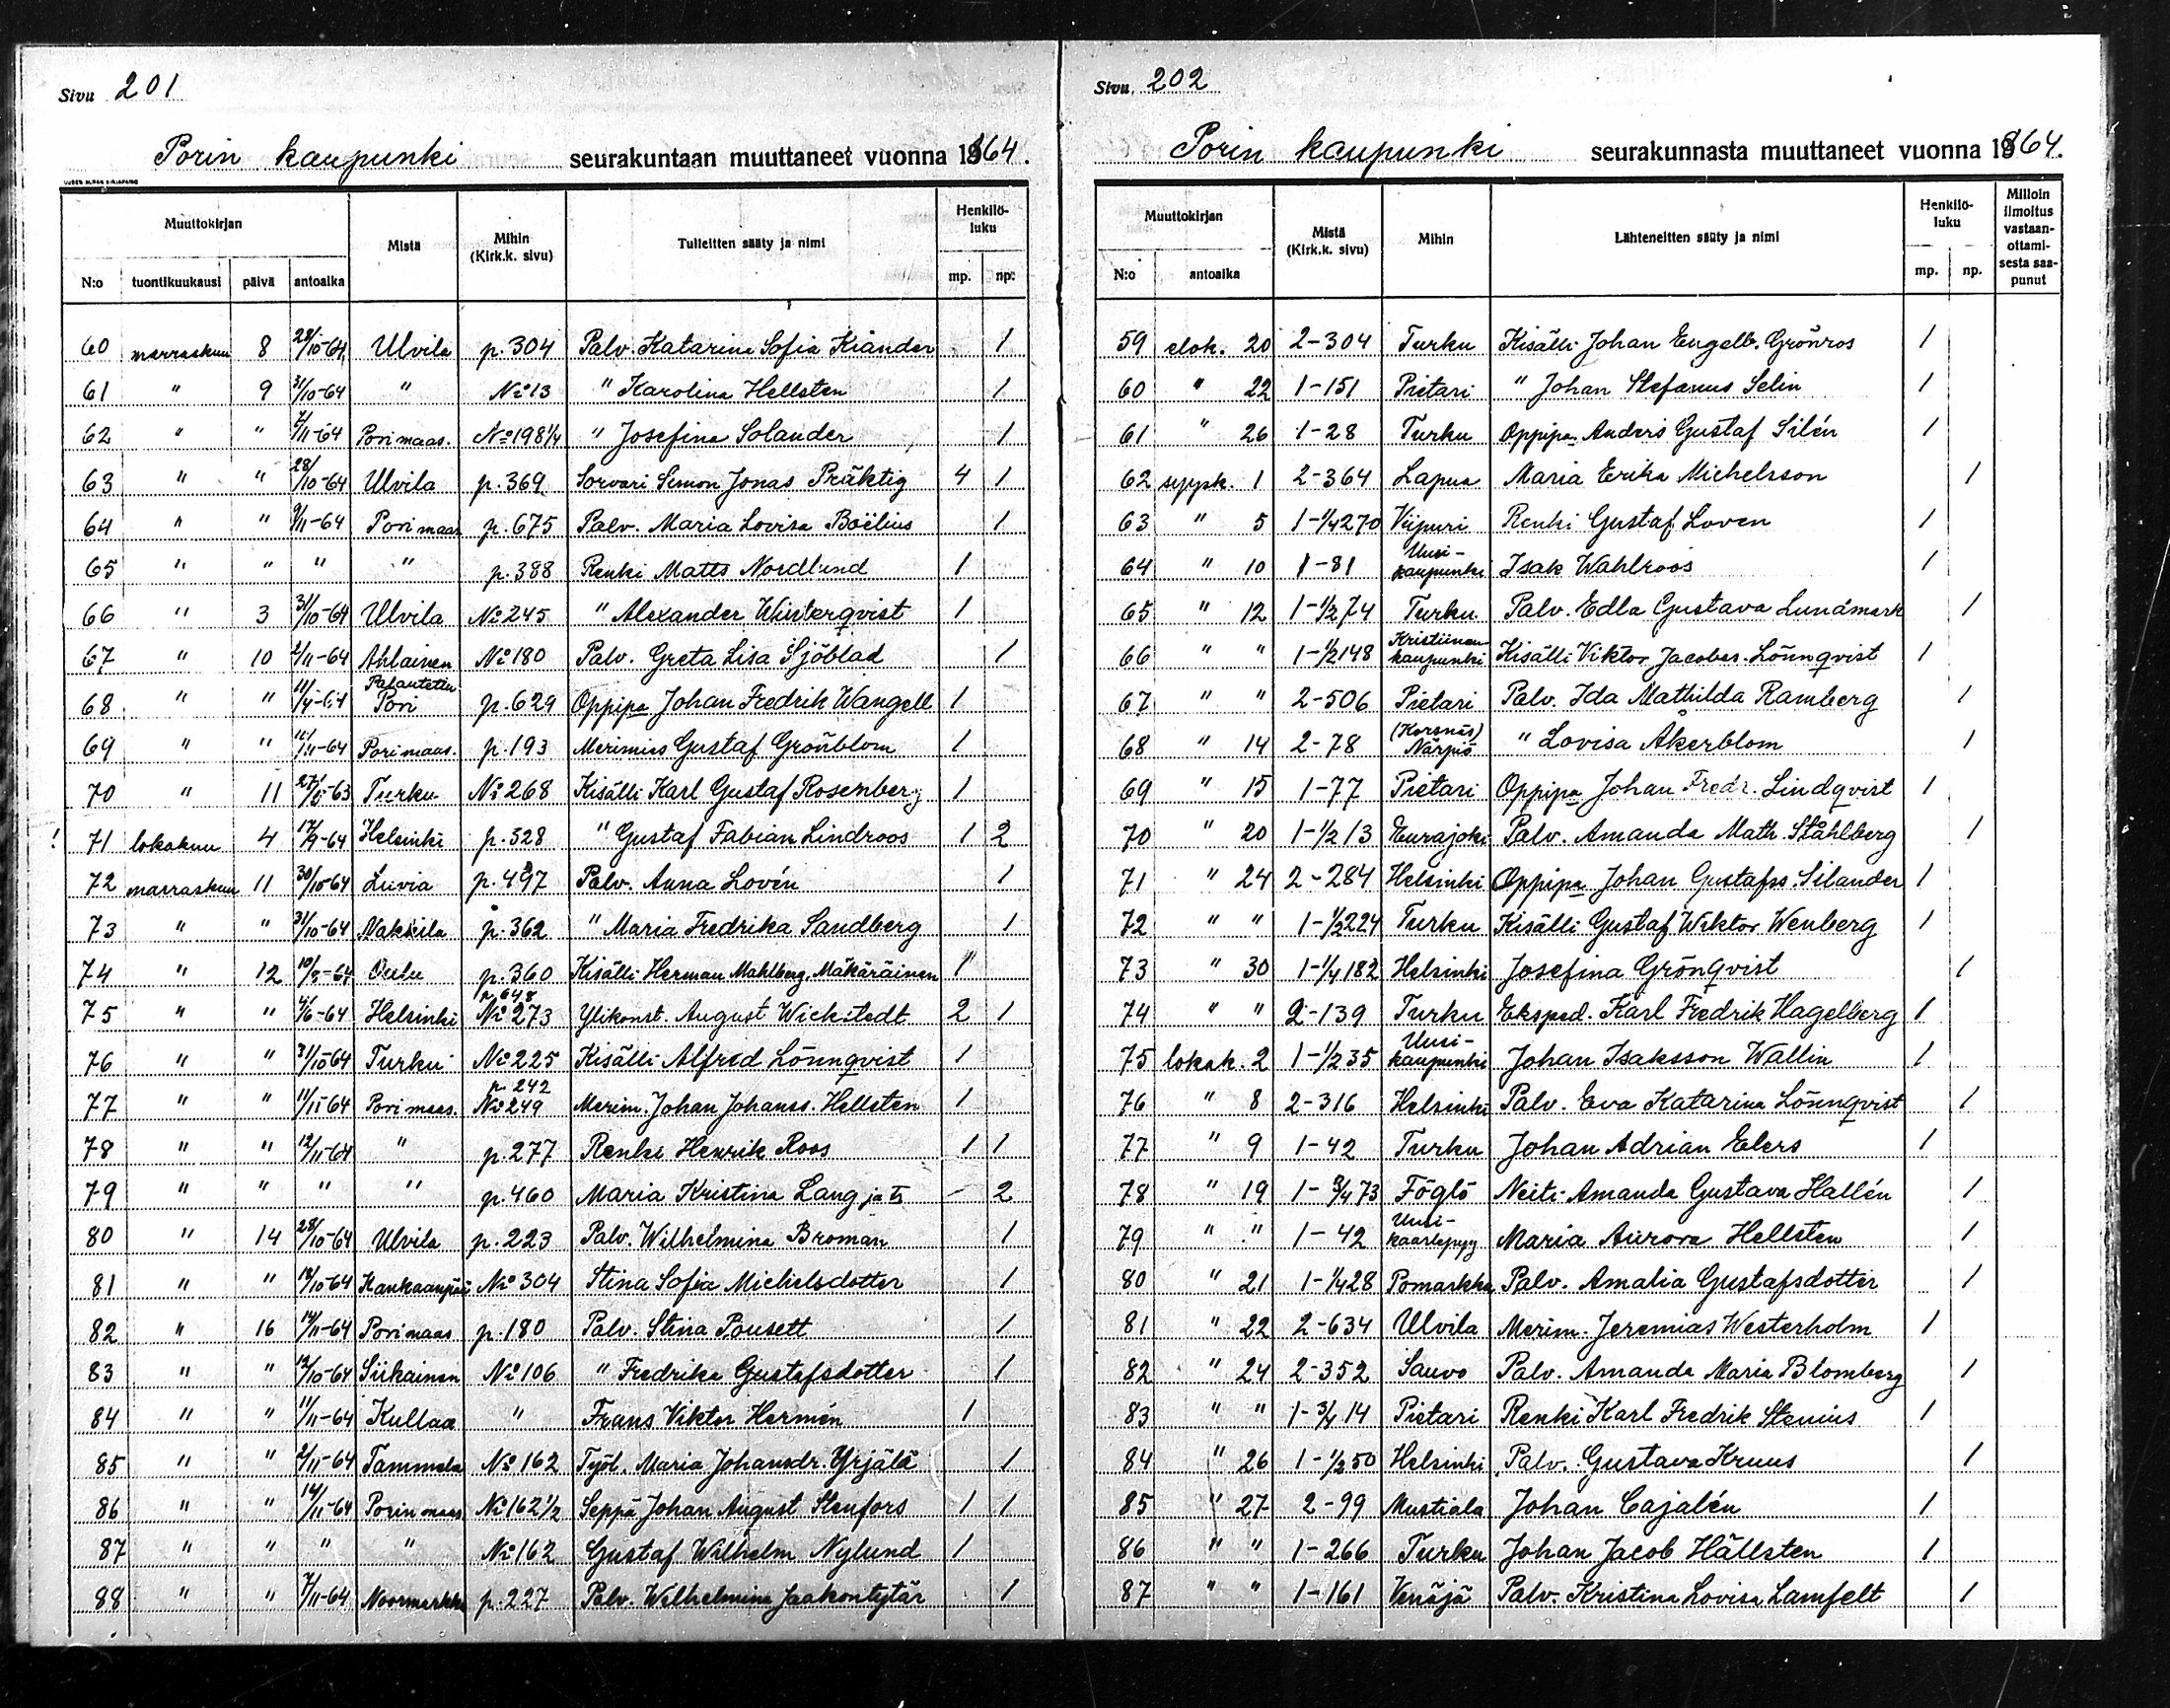 Sivu 201
Porin kaupunki seurakuntaan muuttaneet vuonna 1864.
Muuttokirjan Mistä Mihin (Kirk.k. sivu) Tulleitten sääty ja nimi Henkilö-luku
N:o tuontikuukausi päivä antoaika mp. np.
60 marraskuu 8 28/10-64 Ulvila p. 304 Palv. Katarina Sofia Kiander 1
61 " 9 31/10-64 " No 13 " Karolina Hellsten 1
62 " " 7/11-64 Porimaas. No 198 1/4 " Josefina Solander 1
63 " " 28/10-64 Ulvila p. 369 Sorvari Simon Jonas Präktig 4 1
64 " " 9/11-64 Porimaas p. 675 Palv. Maria Lovisa Boëlius 1
65 " " " " p. 388 Renki Matts Nordlund 1
66 " 3 31/10-64 Ulvila No 245 " Alexander Winterqvist 1
67 " 10 2/11-64 Ahlainen No 180 Palv. Greta Lisa Sjöblad 1
68 " " 11/4-64 Palautettu Pori p. 629 Oppipa Johan Fredrik Wangell 1
69 " " 11/11-64 Porimaas. p. 193 Merimies Gustaf Grönblom 1
70 " 11 -63 Turku No 268 Kisälli Karl Gustaf Rosenberg 1
! 71 lokakuu 4 17/9-64 Helsinki p. 328 " Gustaf Fabian Lindroos 1 2
72 marraskuu 11 30/10-64 Luvia p. 497 Palv. Anna Lovén 1
73 " " 31/10-64 Nakkila p. 362 " Maria Fredrika Sandberg 1
74 " 12 10/8-64 Oulu p. 360 Kisälli Herman Mahlberg, Mäkäräinen 1
75 " " 4/6-64 Helsinki p. 648 No 273 Ylikonst. August Wickstedt 2 1
76 " " 31/10-64 Turku No 225 Kisälli Alfred Lönnqvist 1
77 " " 11/11-64 Porimaas. p. 242 No 249 Merim. Johan Johanss. Hellsten 1
78 " " 12/11-64 " p. 277 Renki Henrik Roos 1 1
79 " " " " p. 460 Maria Kristina Lang ja ts - 2
80 " 14 28/10-64 Ulvila p. 223 Palv. Wilhelmina Broman 1
81 " " 14/10-64 Kankaanpää No 304 Stina Sofia Michelsdotter 1
82 " 16 14/11-64 Porimaas p. 180 Palv. Stina Pousett 1
83 " " 12/10-64 Siikainen No 106 " Fredrika Gustafsdotter 1
84 " " 11/11-64 Kullaa " Frans Viktor Hermén 1
85 " " 2/11-64 Tammela No 162 Työl. Maria Johansdr. Yrjälä 1
86 " " 14/11-64 Porin maas No 162 1/2 Seppä Johan August Stenfors 1 1
87 " " " " No 162 Gustaf Wilhelm Nylund 1
88 " " 7/11-64 Noormarkku p. 227 Palv. Wilhelmina Jaakontytär 1
Sivu 202
Porin kaupunki seurakunnasta muuttaneet vuonna 1864.
Muuttokirjan Mistä (Kirk.k. sivu) Mihin Lähteneitten sääty ja nimi Henkilö-luku Milloin ilmoitus vastaan-ottami-sesta saa-punut
N:o antoaika mp. np.
59 elok. 20 2-304 Turku Kisälli Johan Engelb. Grönros 1
60 " 22 1-151 Pietari " Johan Stefanus Selin 1
61 " 26 1-28 Turku Oppipa Anders Gustaf Silén 1
62 syysk. 1 2-364 Lapua Maria Erika Michelsson 1
63 " 5 1-1/4 270 Viipuri Renki Gustaf Loven 1
64 " 10 1-81 Uusi-kaupunki Isak Wahlroos 1
65 " 12 1-1/2 74 Turku Palv. Edla Gustava Lundmark 1
66 " " 1-1/2 148 Kristiinankaupunki Kisälli Viktor Jacobss. Lönnqvist 1
67 " " 2-506 Pietari Palv. Ida Mathilda Ramberg 1
68 " 14 2-78 (Korsnäs) Närpiö " Lovisa Åkerblom 1
69 " 15 1-77 Pietari Oppipa Johan Fredr. Lindqvist 1
70 " 20 1-1/2 13 Eurajoki Palv. Amanda Math. Ståhlberg 1
71 " 24 2-284 Helsinki Oppipa Johan Gustafss. Silander 1
72 " " 1-1/2 224 Turku Kisälli Gustaf Wiktor Wenberg 1
73 " 30 1-1/4 182 Helsinki Josefina Grönqvist 1
74 " " 2-139 Turku Eksped. Karl Fredrik Hagelberg 1
75 lokak. 2 1-1/2 35 Uusi-kaupunki Johan Isaksson Wallin 1
76 " 8 2-316 Helsinki Palv. Eva Katarina Lönnqvist 1
77 " 9 1-42 Turku Johan Adrian Elers 1
78 " 19 1-3/4 73 Föglö Neiti Amanda Gustava Hallén 1
79 " " 1-42 Uusi-kaarlepyy Maria Aurora Hellsten 1
80 " 21 1-1/4 28 Pomarkku Palv. Amalia Gustafsdotter 1
81 " 22 2-634 Ulvila Merim. Jeremias Westerholm 1
82 " 24 2-352 Sauvo Palv. Amanda Maria Blomberg 1
83 " " 1-3/4 14 Pietari Renki Karl Fredrik Stenius 1
84 " 26 1-1/2 50 Helsinki Palv. Gustava Kruus 1
85 " 27 2-99 Mustiala Johan Cajalén 1
86 " " 1-266 Turku Johan Jacob Hällsten 1
87 " " 1-161 Venäjä Palv. Kristina Lovisa Lamfelt 1